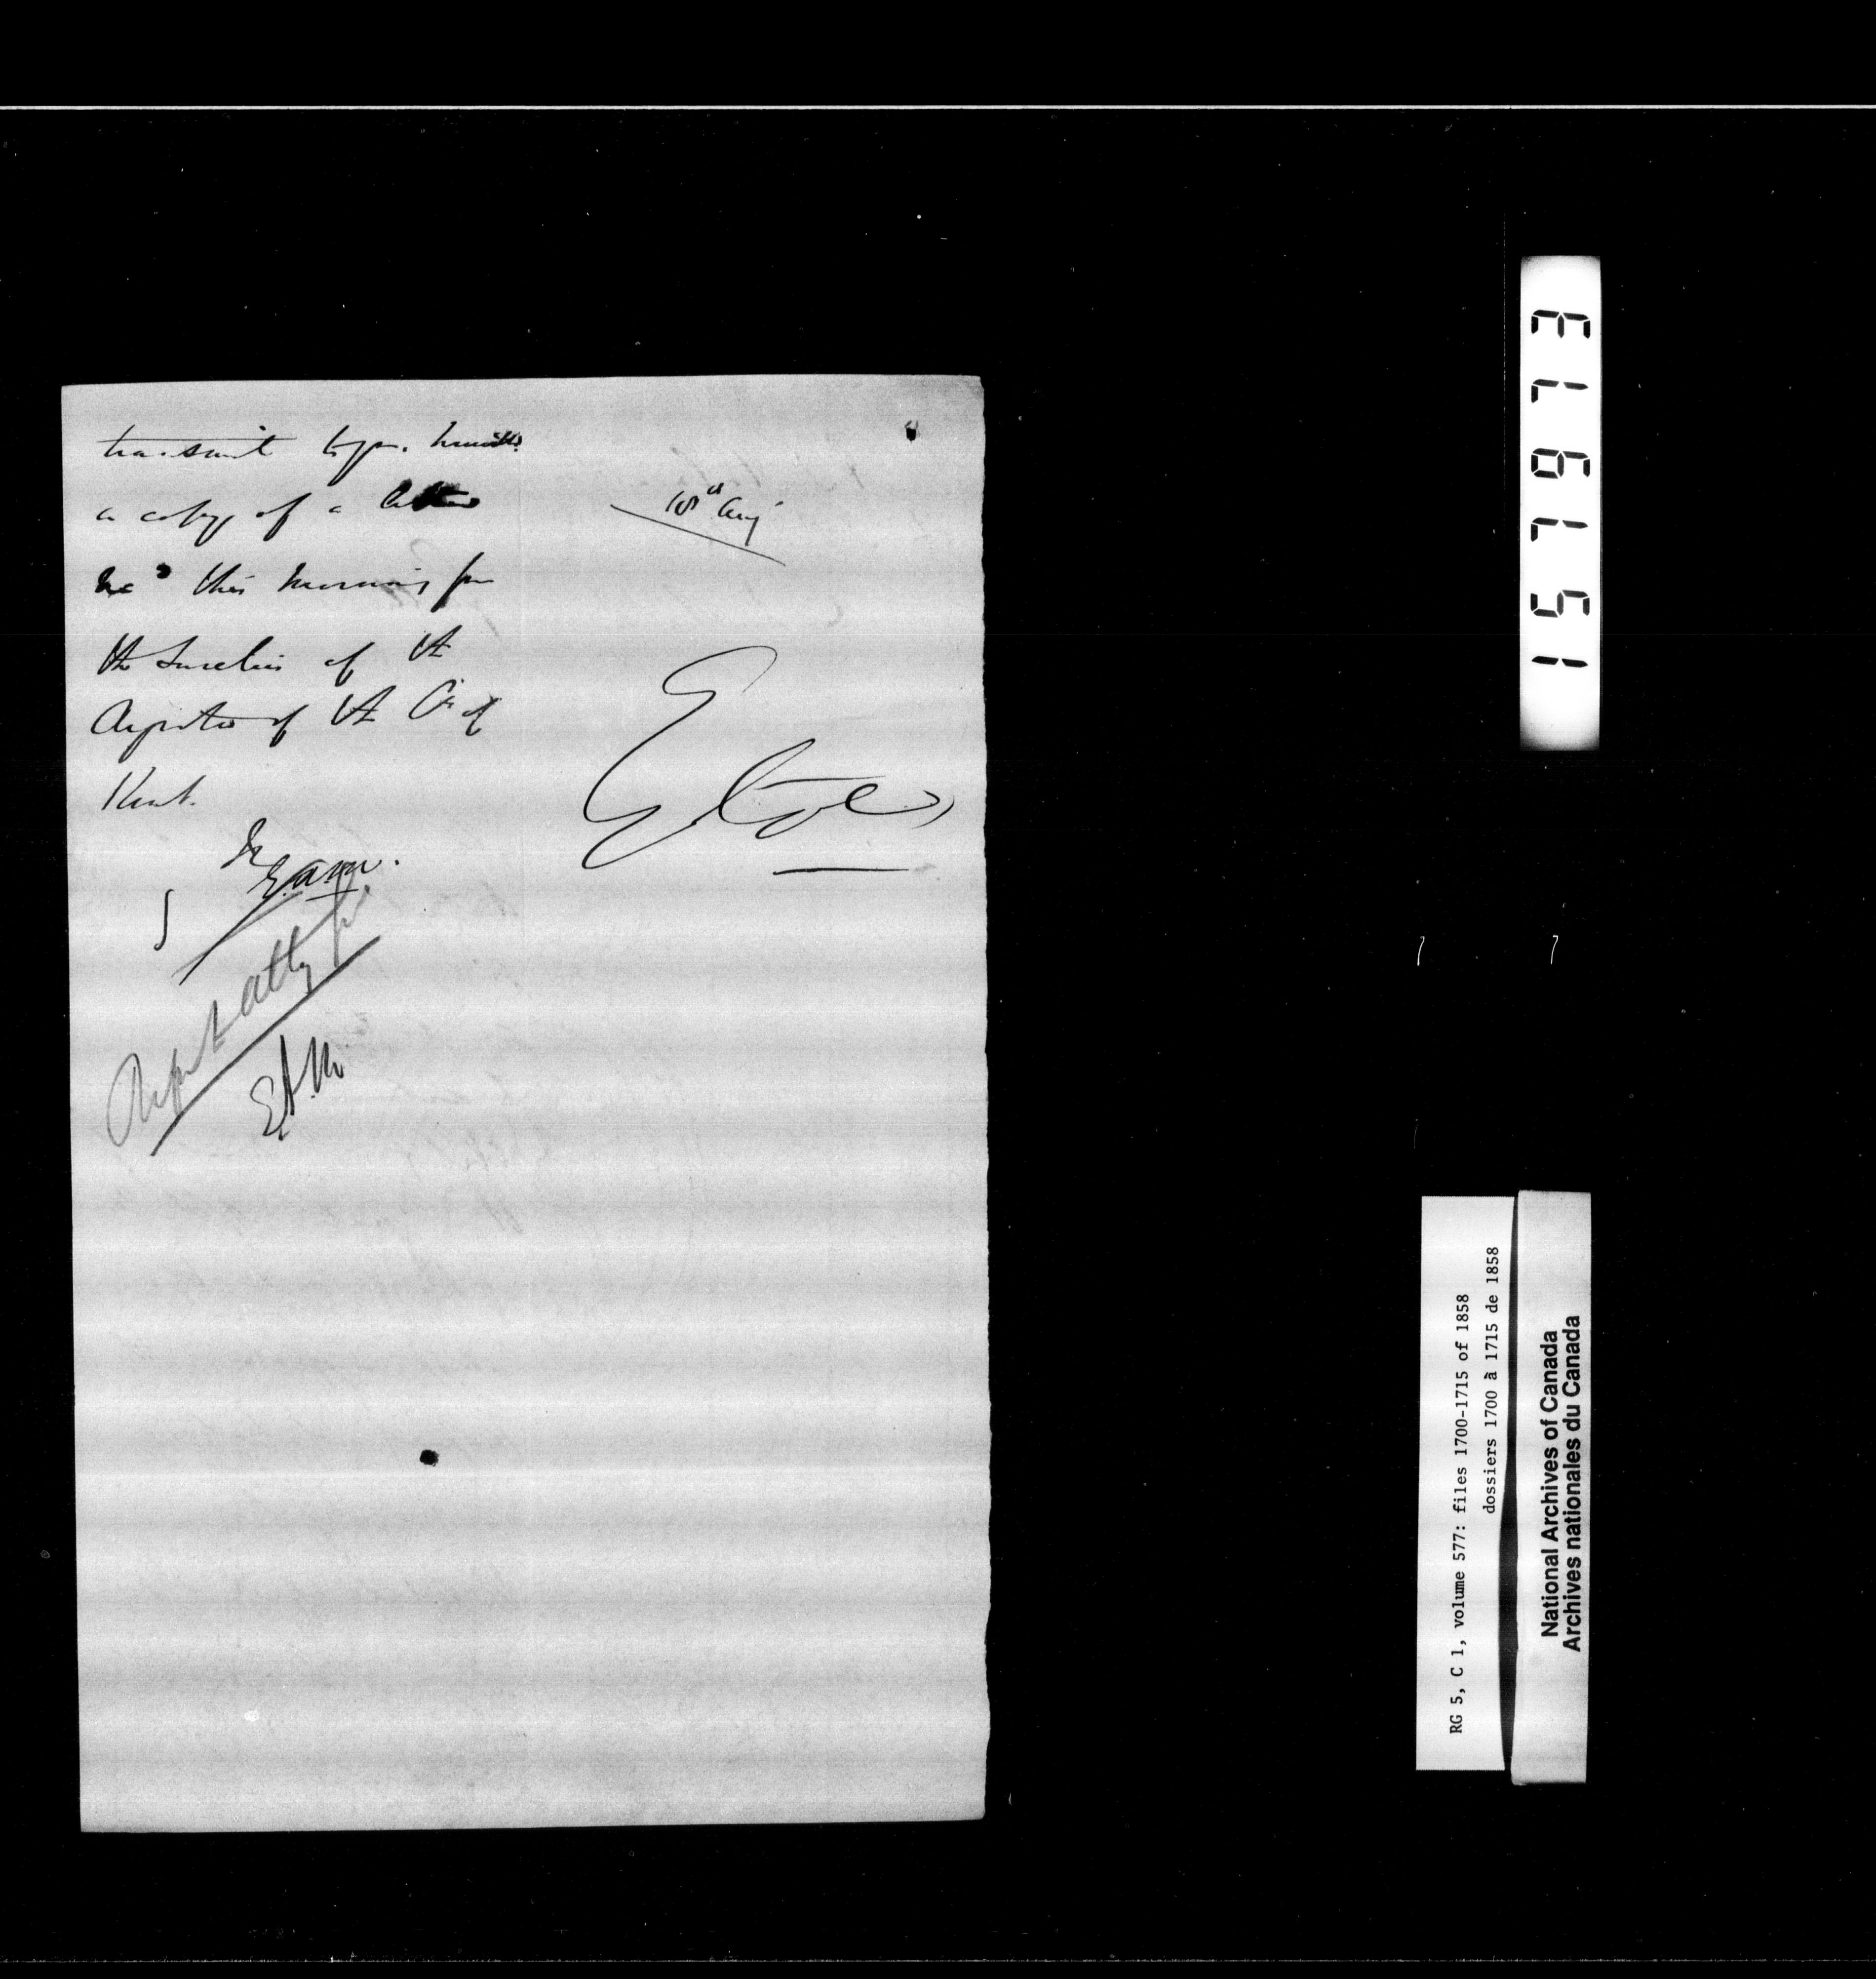 transmit to you herewith
a copy of a letter
recd this morning from
the Sureties of the
Registrar of the Co of
Kent.
E.A.M.
Report Atty
E.A.M
10th Aug
RG 5, C 1, volume 577: files 1700-1715 of 1858
dossiers 1700 à 1715 de 1858
National Archives of Canada
Archives nationales du Canada